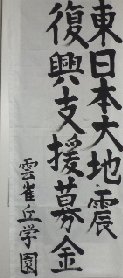 東日本大地震
復興支援募金
雲雀丘学園